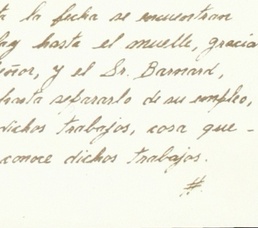 ta la fecha se encuentran
hasta el muelle, gracia
eñor, y el Sr. Barnard,
hasta separarlo de su empleo,
dichos trabajos, cosa que -
conoce dichos trabajos.
#